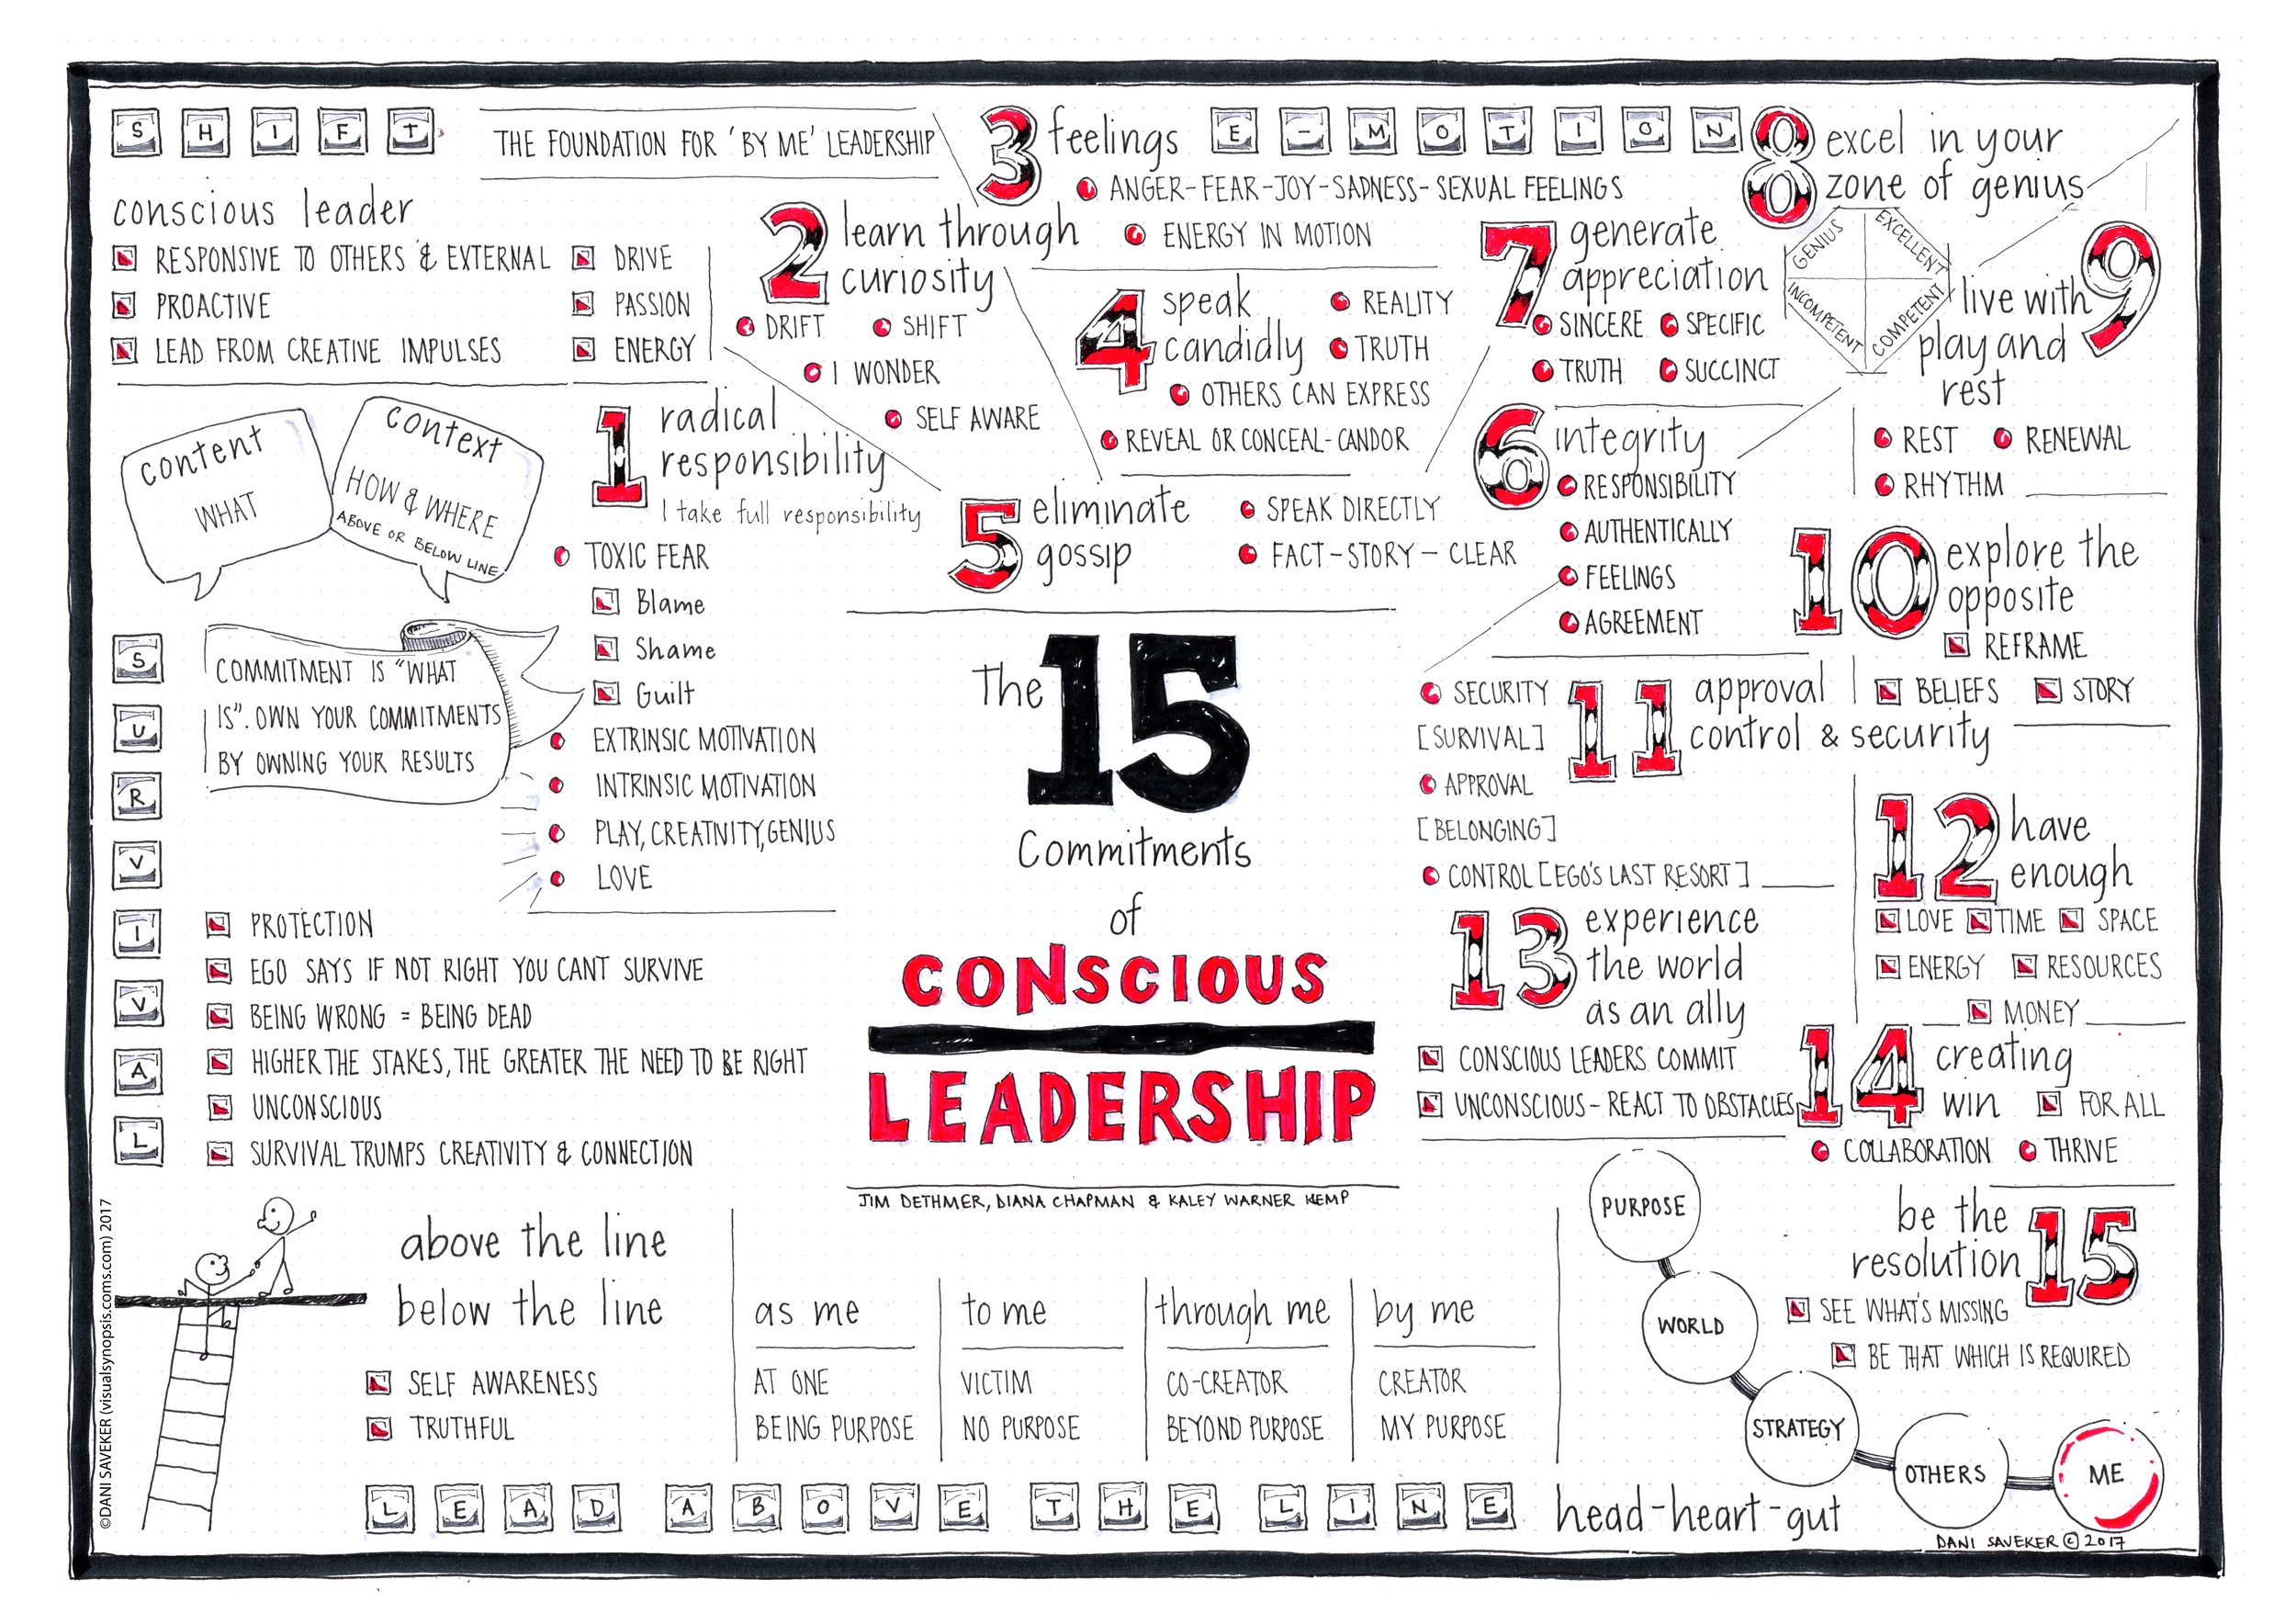 SHIFT
THE FOUNDATION FOR 'BY ME' LEADERSHIP
conscious leader
RESPONSIVE TO OTHERS & EXTERNAL
PROACTIVE
LEAD FROM CREATIVE IMPULSES
DRIVE
PASSION
ENERGY
content
WHAT
context
HOW & WHERE
ABOVE OR BELOW LINE
SURVIVAL
COMMITMENT IS "WHAT
IS". OWN YOUR COMMITMENTS
BY OWNING YOUR RESULTS
PROTECTION
EGO SAYS IF NOT RIGHT YOU CANT SURVIVE
BEING WRONG = BEING DEAD
HIGHER THE STAKES, THE GREATER THE NEED TO BE RIGHT
UNCONSCIOUS
SURVIVAL TRUMPS CREATIVITY & CONNECTION
1 radical
responsibility
I take full responsibility
TOXIC FEAR
Blame
Shame
Guilt
EXTRINSIC MOTIVATION
INTRINSIC MOTIVATION
PLAY, CREATIVITY, GENIUS
LOVE
2 learn through
curiosity
DRIFT
SHIFT
I WONDER
SELF AWARE
3 feelings
E-MOTION
ANGER-FEAR-JOY-SADNESS-SEXUAL FEELINGS
ENERGY IN MOTION
4 speak
candidly
REALITY
TRUTH
OTHERS CAN EXPRESS
REVEAL OR CONCEAL-CANDOR
5 eliminate
gossip
SPEAK DIRECTLY
FACT-STORY-CLEAR
6 integrity
RESPONSIBILITY
AUTHENTICALLY
FEELINGS
AGREEMENT
7 generate
appreciation
SINCERE
SPECIFIC
TRUTH
SUCCINCT
8 excel in your
zone of genius
GENIUS
EXCELLENT
INCOMPETENT
COMPETENT
9 live with
play and
rest
REST
RENEWAL
RHYTHM
10 explore the
opposite
REFRAME
BELIEFS
STORY
11 approval
control & security
SECURITY
[SURVIVAL]
APPROVAL
[BELONGING]
CONTROL [EGO'S LAST RESORT]
12 have
enough
LOVE
TIME
SPACE
ENERGY
RESOURCES
MONEY
13 experience
the world
as an ally
CONSCIOUS LEADERS COMMIT
UNCONSCIOUS-REACT TO OBSTACLES
14 creating
win
FOR ALL
COLLABORATION
THRIVE
be the
resolution 15
SEE WHAT'S MISSING
BE THAT WHICH IS REQUIRED
PURPOSE
WORLD
STRATEGY
OTHERS
ME
head-heart-gut
The 15
Commitments
of
CONSCIOUS
LEADERSHIP
JIM DETHMER, DIANA CHAPMAN & KALEY WARNER KEMP
above the line
below the line
SELF AWARENESS
TRUTHFUL
as me
AT ONE
BEING PURPOSE
to me
VICTIM
NO PURPOSE
through me
CO-CREATOR
BEYOND PURPOSE
by me
CREATOR
MY PURPOSE
LEAD ABOVE THE LINE
©DANI SAVEKER (visualsynopsis.coms.com) 2017
DANI SAVEKER © 2017